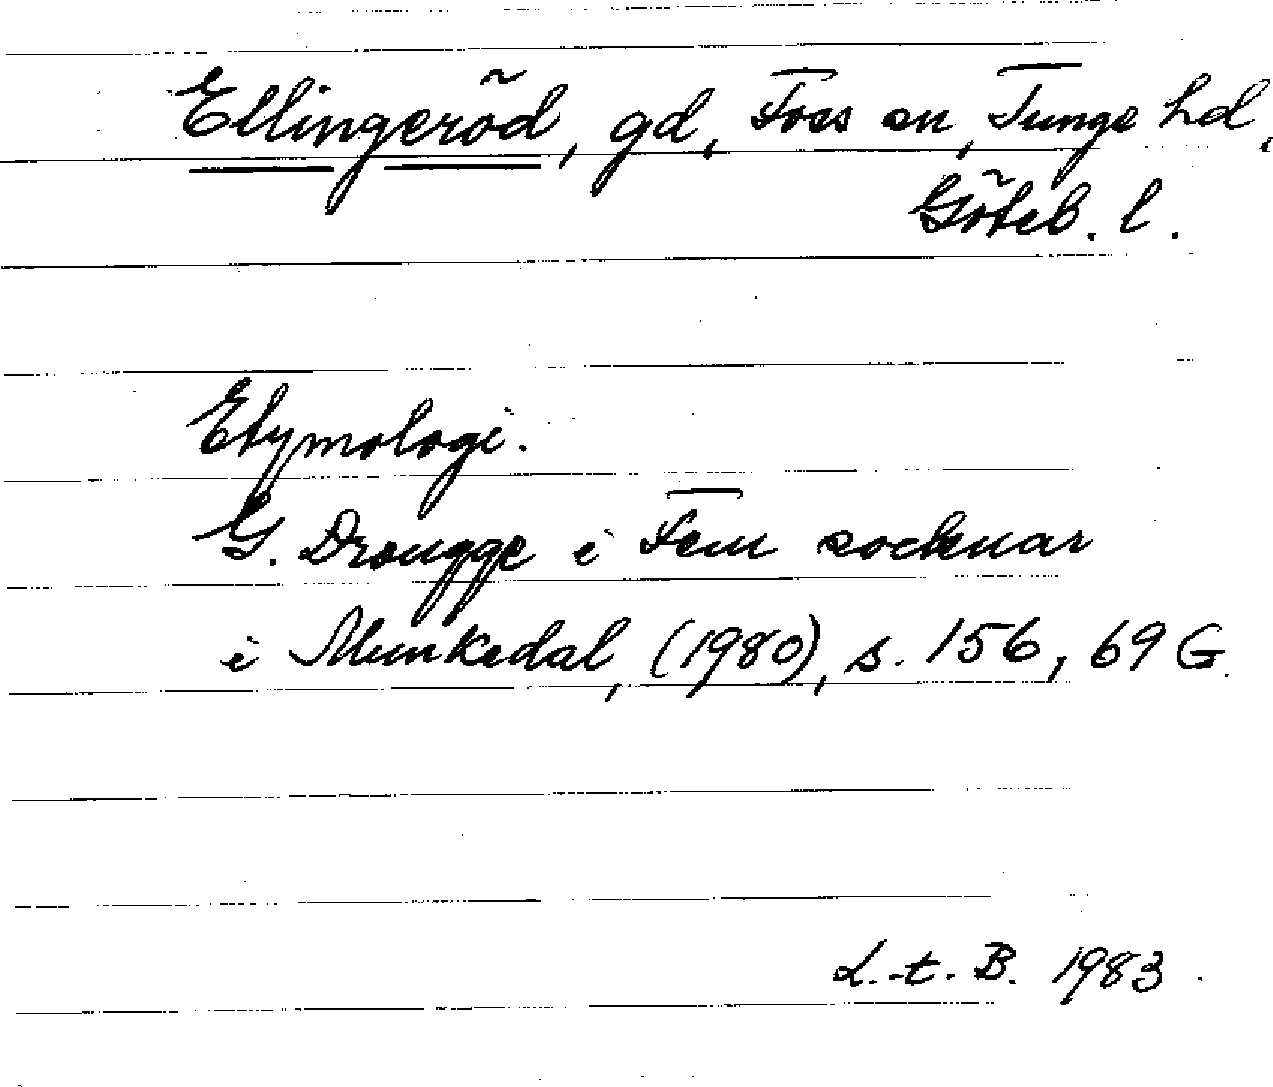 Ellingeröd, gd, Foss sn, Tunge hd,
Göteb. l.
Etymologi.
G. Drougge i Fem socknar
i Munkedal, (1980), s. 156, 69 G.
L.-t. B. 1983.